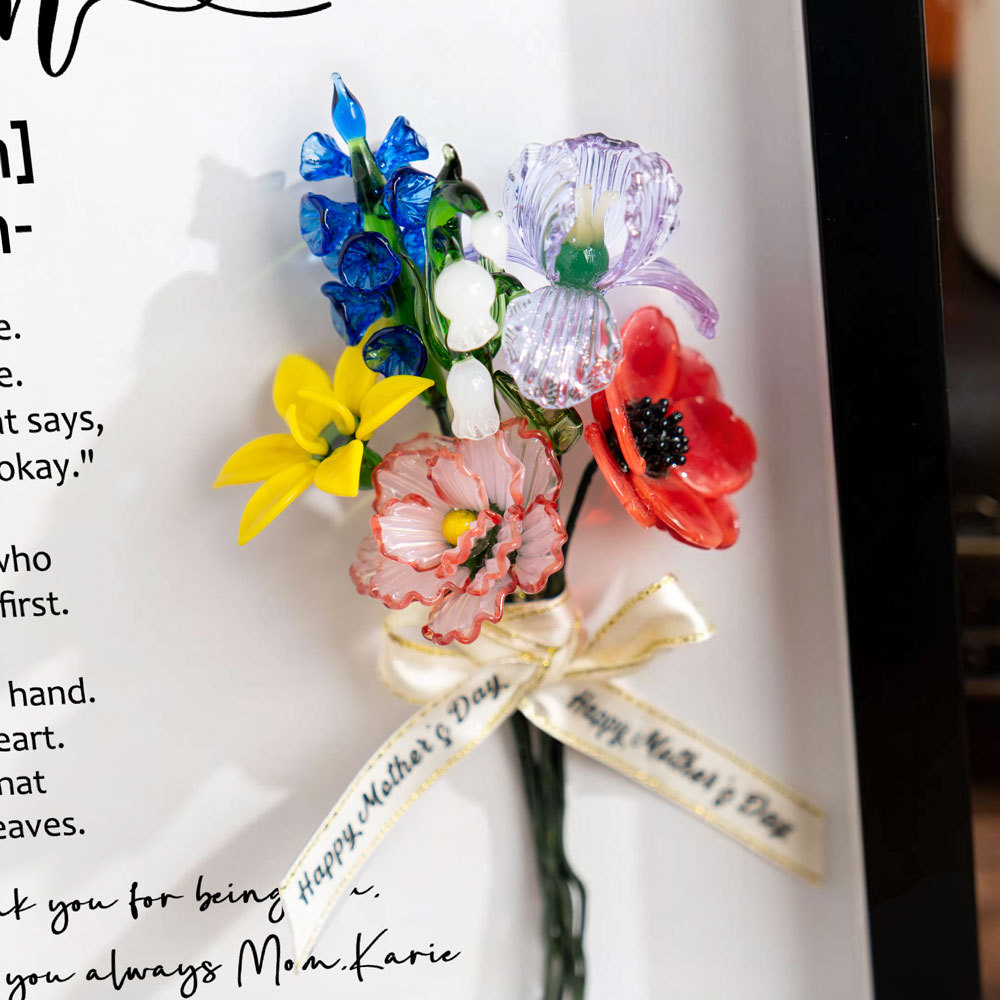 e.
e.
at says,
okay."
who
first.
hand.
eart.
hat
eaves.
you for being
you always Mom.Karie
Happy Mother's Day
Happy Mother's Day